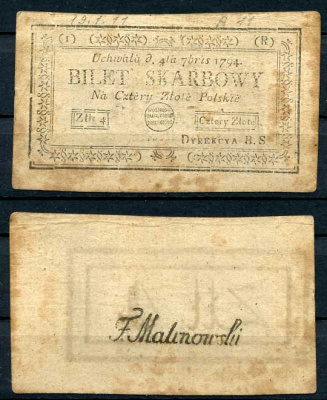 (1) (R)
Uchwała d. 4ta 7bris 1794.
BILET SKARBOWY
Na Cztéry Złote Polskie
Złł: 4
Cztéry Złote
DYREKCYA B. S
F. Malinowski